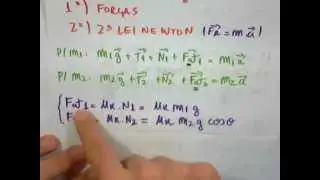 1º) FORÇAS
2º) 2ª LEI NEWTON (F⃗R = m a⃗)
P/ m1: m1g⃗ + T⃗1 + N⃗1 + F⃗aT1 = m1a⃗
P/ m2: m2g⃗ + T⃗2 + N⃗2 + F⃗aT2 = m2a⃗
FaT1 = μk.N1 = μk m1 g
= μk.N2 = μk m2 g cosθ